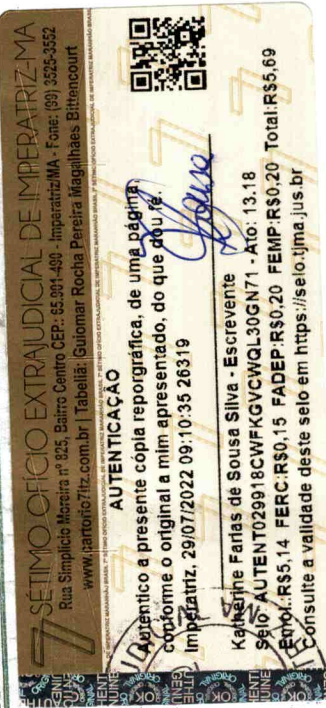 SÉTIMO OFÍCIO EXTRAJUDICIAL DE IMPERATRIZ-MA
Rua Simplício Moreira nº 825, Bairro Centro CEP.: 65.901-490 - Imperatriz/MA - Fone: (99) 3525-3552
www.cartorio7itz.com.br | Tabeliã: Guiomar Rocha Pereira Magalhães Bittencourt
AUTENTICAÇÃO
Autentico a presente cópia reporgráfica, de uma página,
conforme o original a mim apresentado, do que dou fé.
Imperatriz, 29/07/2022 09:10:35 26319
Katherine Farias de Sousa Silva - Escrevente
Selo: AUTENT029918CWFKGVCWQL30GN71 - Ato: 13.18
Emol.:R$5,14 FERC:R$0,15 FADEP:R$0,20 FEMP:R$0,20 Total:R$5,69
Consulte a validade deste selo em https://selo.tjma.jus.br